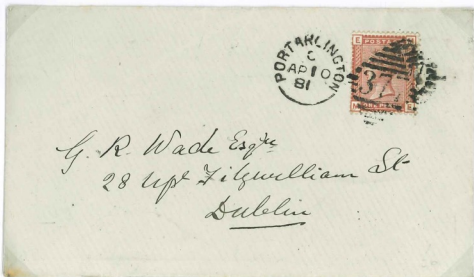 PORTARLINGTON
C
AP 10
81
E POSTA
377
ONE PE
M E
G. R. Wade Esqre
28 Upr Fitzwilliam St
Dublin